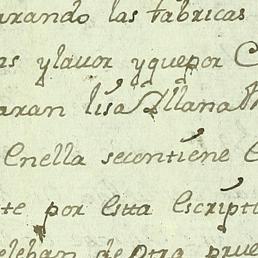 urando las fabricas
as ylavor yquepor
aran lisa Yllana
Enella secontiene
te por esta Escriptu
eleban de otra prue